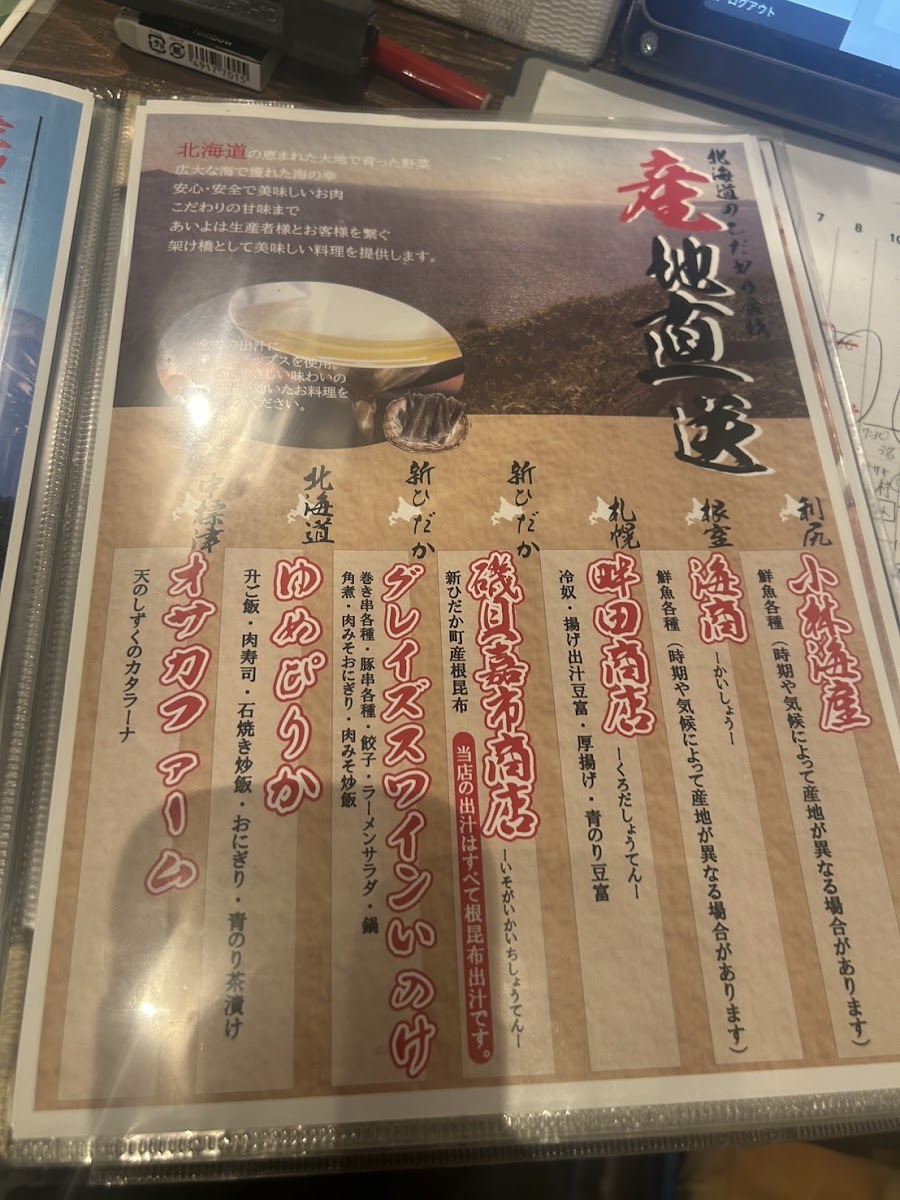 ログアウト
Tombow
4917 7015
北海道の恵まれた大地で育った野菜
広大な海で獲れた海の幸
安心・安全で美味しいお肉
こだわりの甘味まで
あいよは生産者様とお客様を繋ぐ
架け橋として美味しい料理を提供します。
北海道のこだわり食材
産地直送
出汁に
ブスを使用。
しい味わいの
いたお料理を
ください。
利尻
小林海産
鮮魚各種(時期や気候によって産地が異なる場合があります)
根室
海商
ーかいしょうー
鮮魚各種(時期や気候によって産地が異なる場合があります)
札幌
畔田商店
ーくろだしょうてんー
冷奴・揚げ出汁豆富・厚揚げ・青のり豆富
新ひだか
磯貝嘉市商店
ーいそがいかいちしょうてんー
新ひだか町産根昆布
当店の出汁はすべて根昆布出汁です。
新ひだか
グレイズスワインいのけ
巻き串各種・豚串各種・餃子・ラーメンサラダ・鍋
角煮・肉みそおにぎり・肉みそ炒飯
北海道
ゆめぴりか
升ご飯・肉寿司・石焼き炒飯・おにぎり・青のり茶漬け
中標津
オサカファーム
天のしずくのカタラーナ
7
8